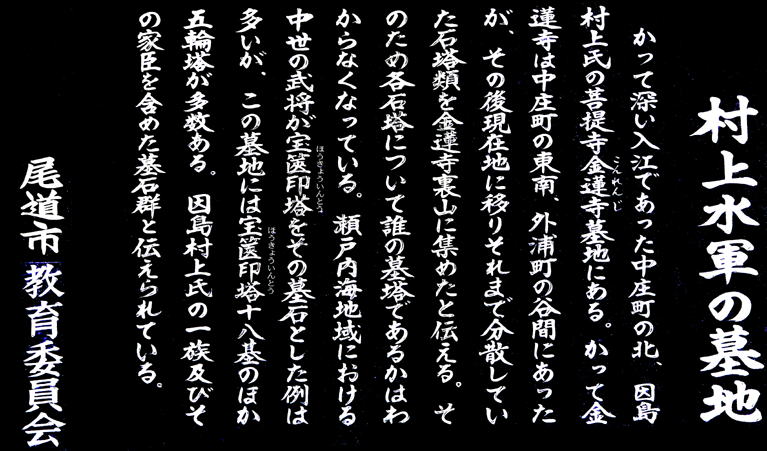 村上水軍の墓地
かって深い入江であった中庄町の北、因島
村上氏の菩提寺金蓮寺墓地にある。かって金
こんれんじ
蓮寺は中庄町の東南、外浦町の谷間にあった
が、その後現在地に移りそれまで分散してい
た石塔類を金蓮寺裏山に集めたと伝える。そ
のため各石塔について誰の墓塔であるかはわ
からなくなっている。瀬戸内海地域における
中世の武将が宝篋印塔をその墓石とした例は
ほうきょういんとう
多いが、この墓地には宝篋印塔十八基のほか
ほうきょういんとう
五輪塔が多数ある。因島村上氏の一族及びそ
の家臣を含めた墓石群と伝えられている。
尾道市教育委員会